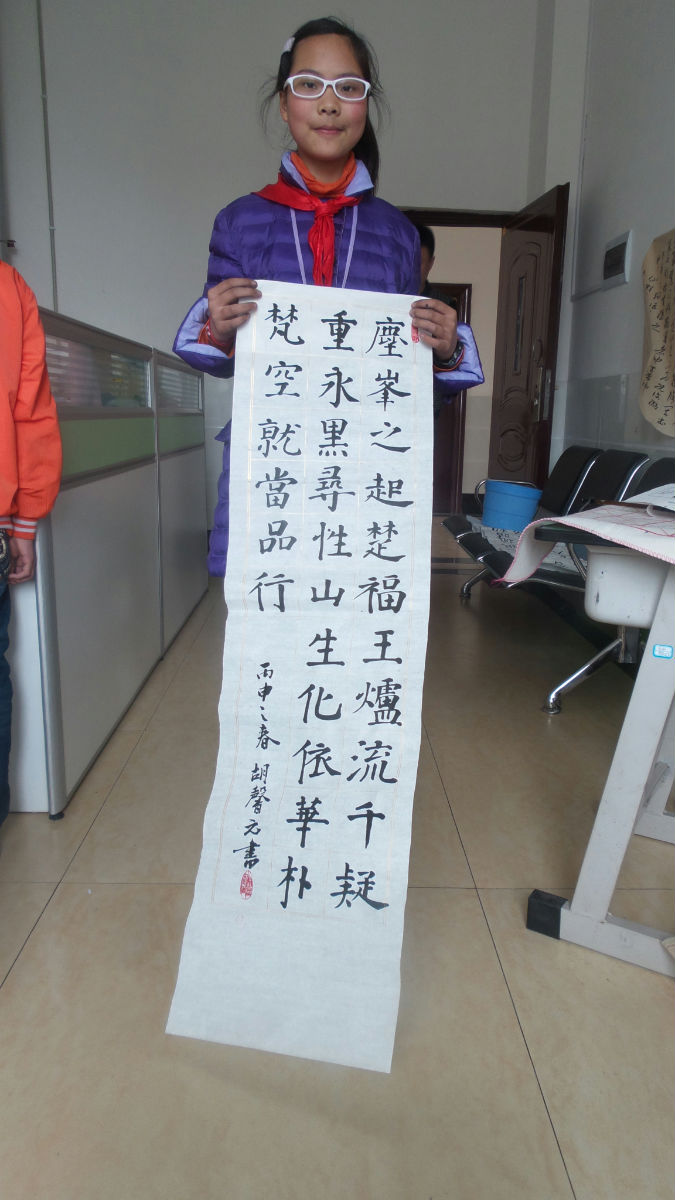 塵峯之起楚福王爐流千疑
重永黑尋性山生化依華朴
梵空就當品行
丙申之春 胡馨元書